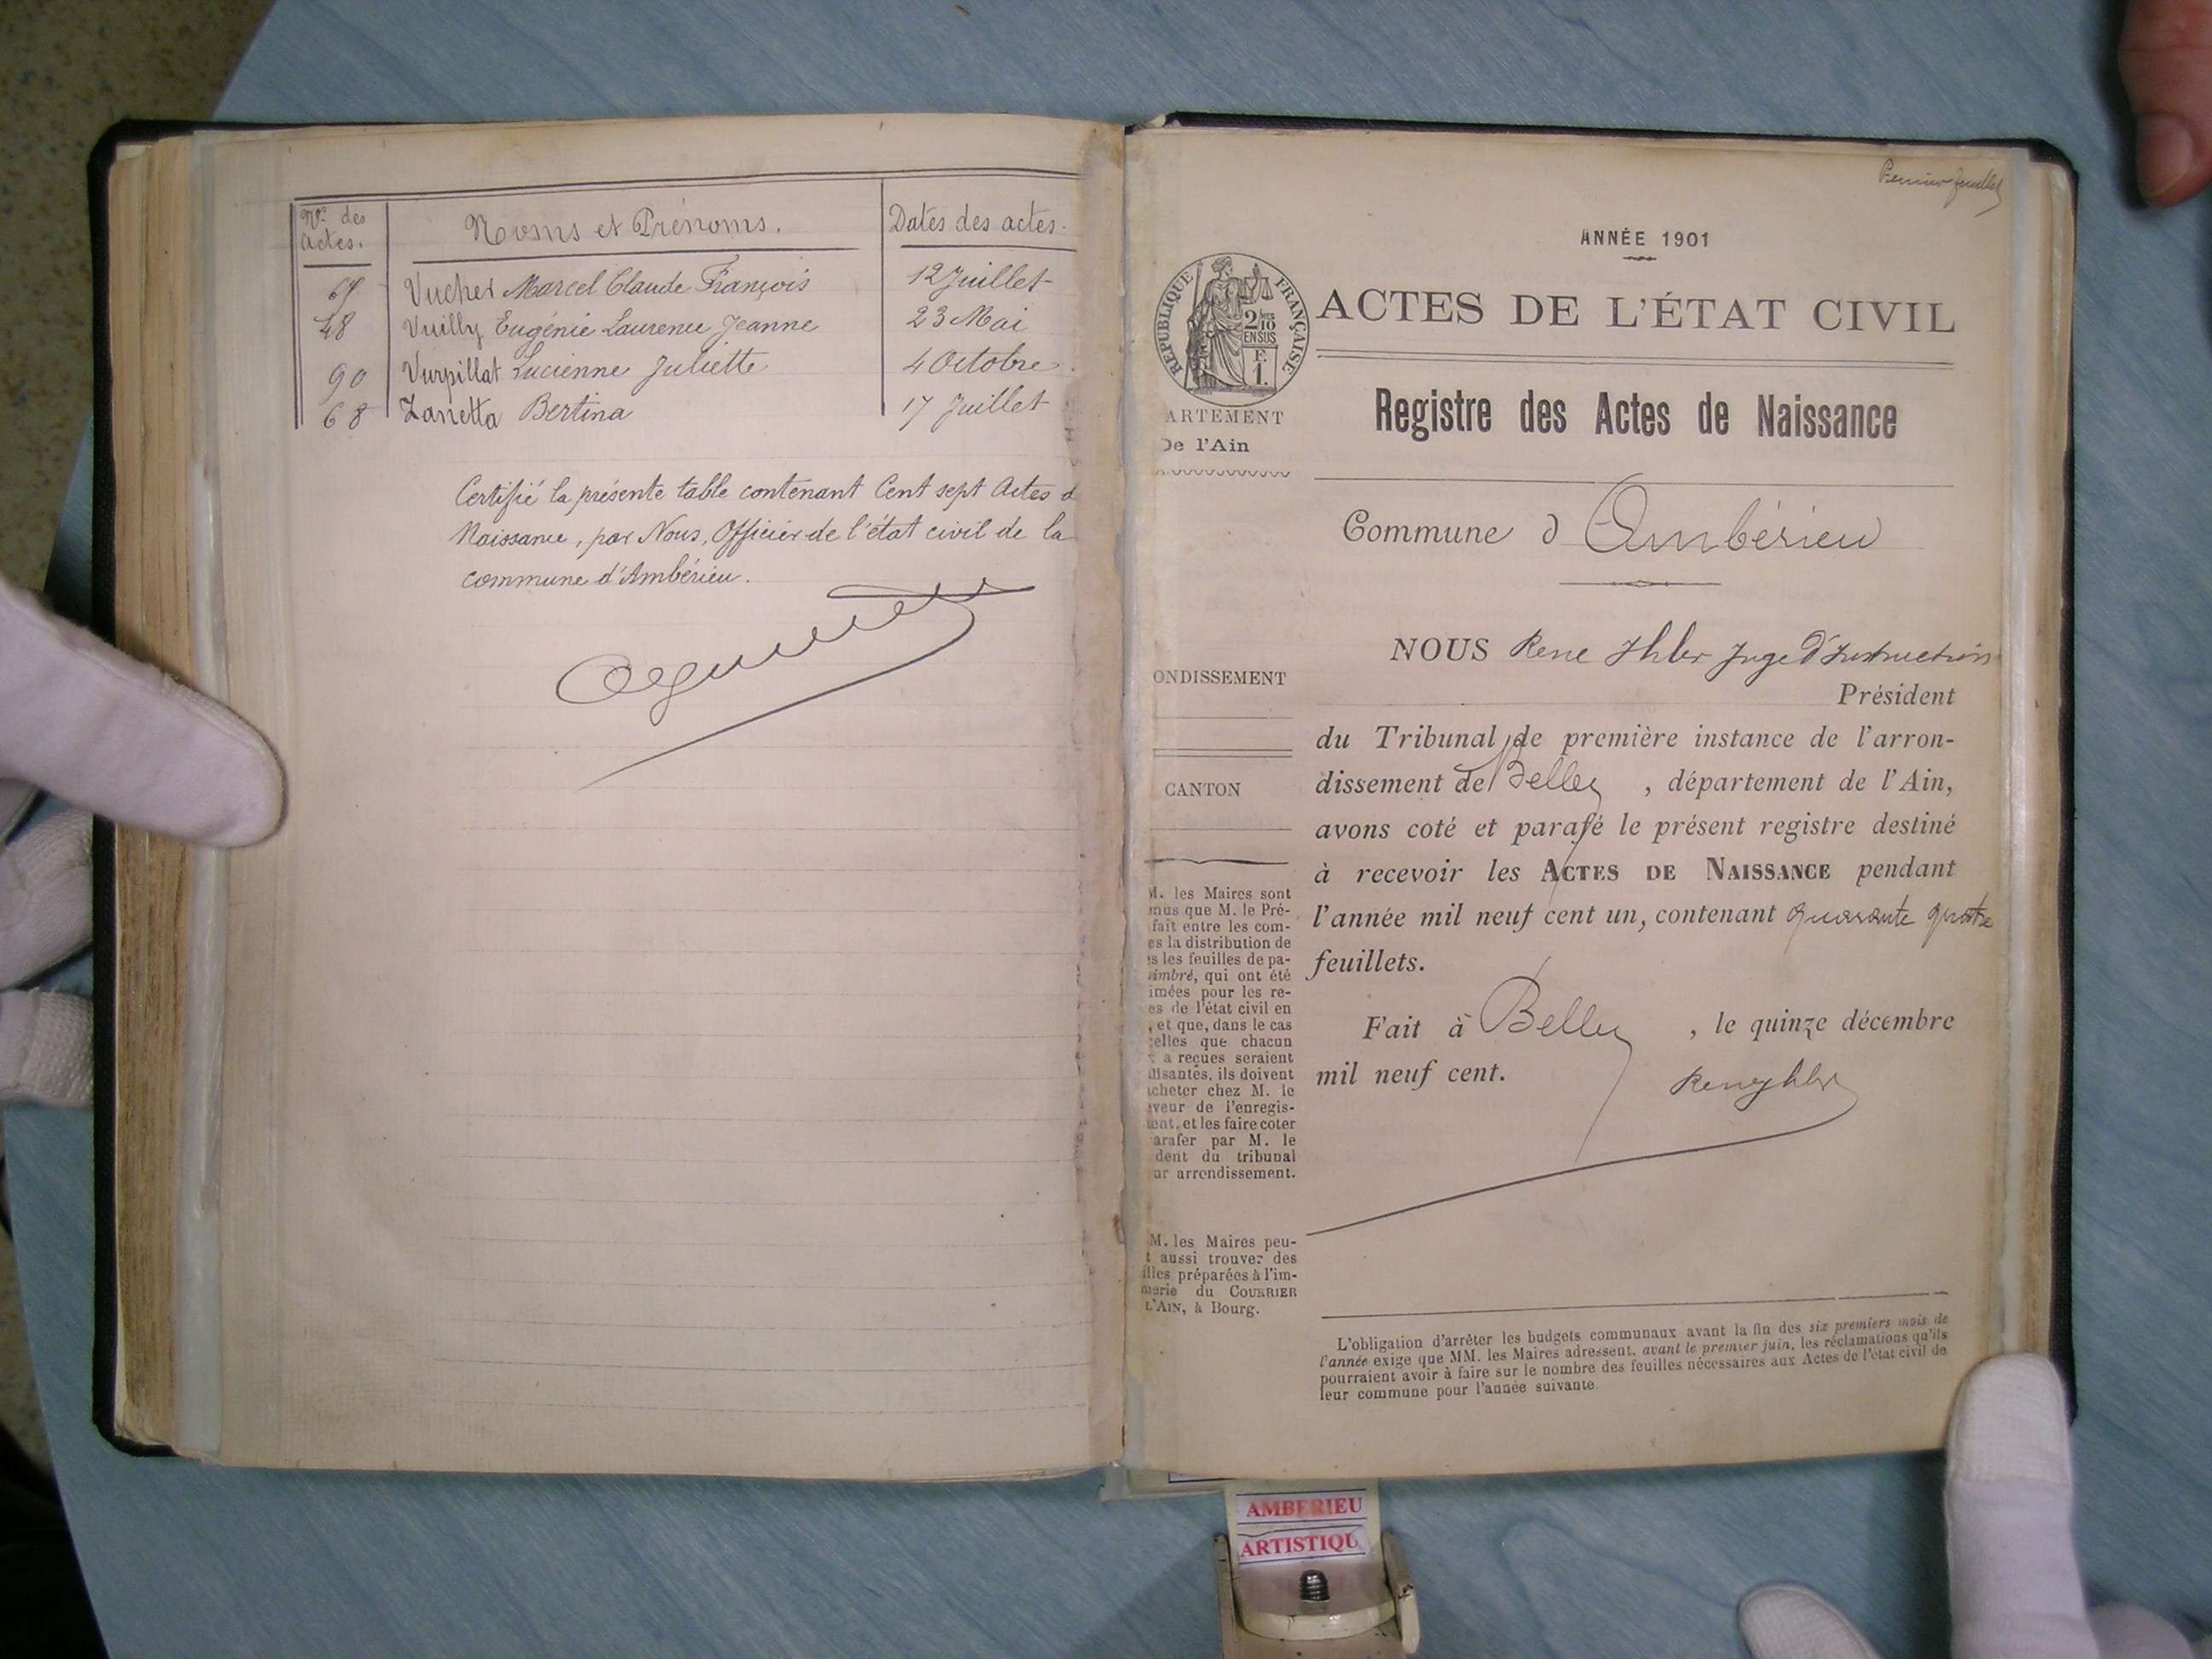 Nos des actes.
Noms et Prénoms.
Dates des actes.
Vucher Marcel Claude François 12 Juillet
48 Vuilly Eugénie Laurence Jeanne 23 Mai
90 Vurpillat Lucienne Juliette 4 Octobre
68 Zanetta Bertina 17 Juillet
Certifié la présente table contenant Cent sept Actes d
Naissance, par Nous, Officier de l'état civil de la
commune d'Ambérieu.
Premier feuillet
ANNÉE 1901
RÉPUBLIQUE FRANÇAISE
2/10
EN SUS
F.
1.
ACTES DE L'ÉTAT CIVIL
ARTEMENT
De l'Ain
Registre des Actes de Naissance
Commune d Ambérieu
ONDISSEMENT
CANTON
M. les Maires sont
nus que M. le Pré-
fait entre les com-
es la distribution de
s les feuilles de pa-
imbré, qui ont été
imées pour les re-
es de l'état civil en
, et que, dans le cas
elles que chacun
a reçues seraient
ffisantes, ils doivent
cheter chez M. le
veur de l'enregis-
ent, et les faire coter
arafer par M. le
dent du tribunal
ur arrondissement.
M. les Maires peu-
t aussi trouver des
illes préparées à l'im-
merie du COURRIER
L'AIN, à Bourg.
NOUS Rene Ihler Juge d'Instruction
Président
du Tribunal de première instance de l'arron-
dissement de Belley , département de l'Ain,
avons coté et parafé le présent registre destiné
à recevoir les ACTES DE NAISSANCE pendant
l'année mil neuf cent un, contenant quarante quatre
feuillets.
Fait à Belley , le quinze décembre
mil neuf cent.
Rene Ihler
L'obligation d'arrêter les budgets communaux avant la fin des six premiers mois de
l'année exige que MM. les Maires adressent, avant le premier juin, les réclamations qu'ils
pourraient avoir à faire sur le nombre des feuilles nécessaires aux Actes de l'état civil de
leur commune pour l'année suivante.
AMBERIEU
ARTISTIQU